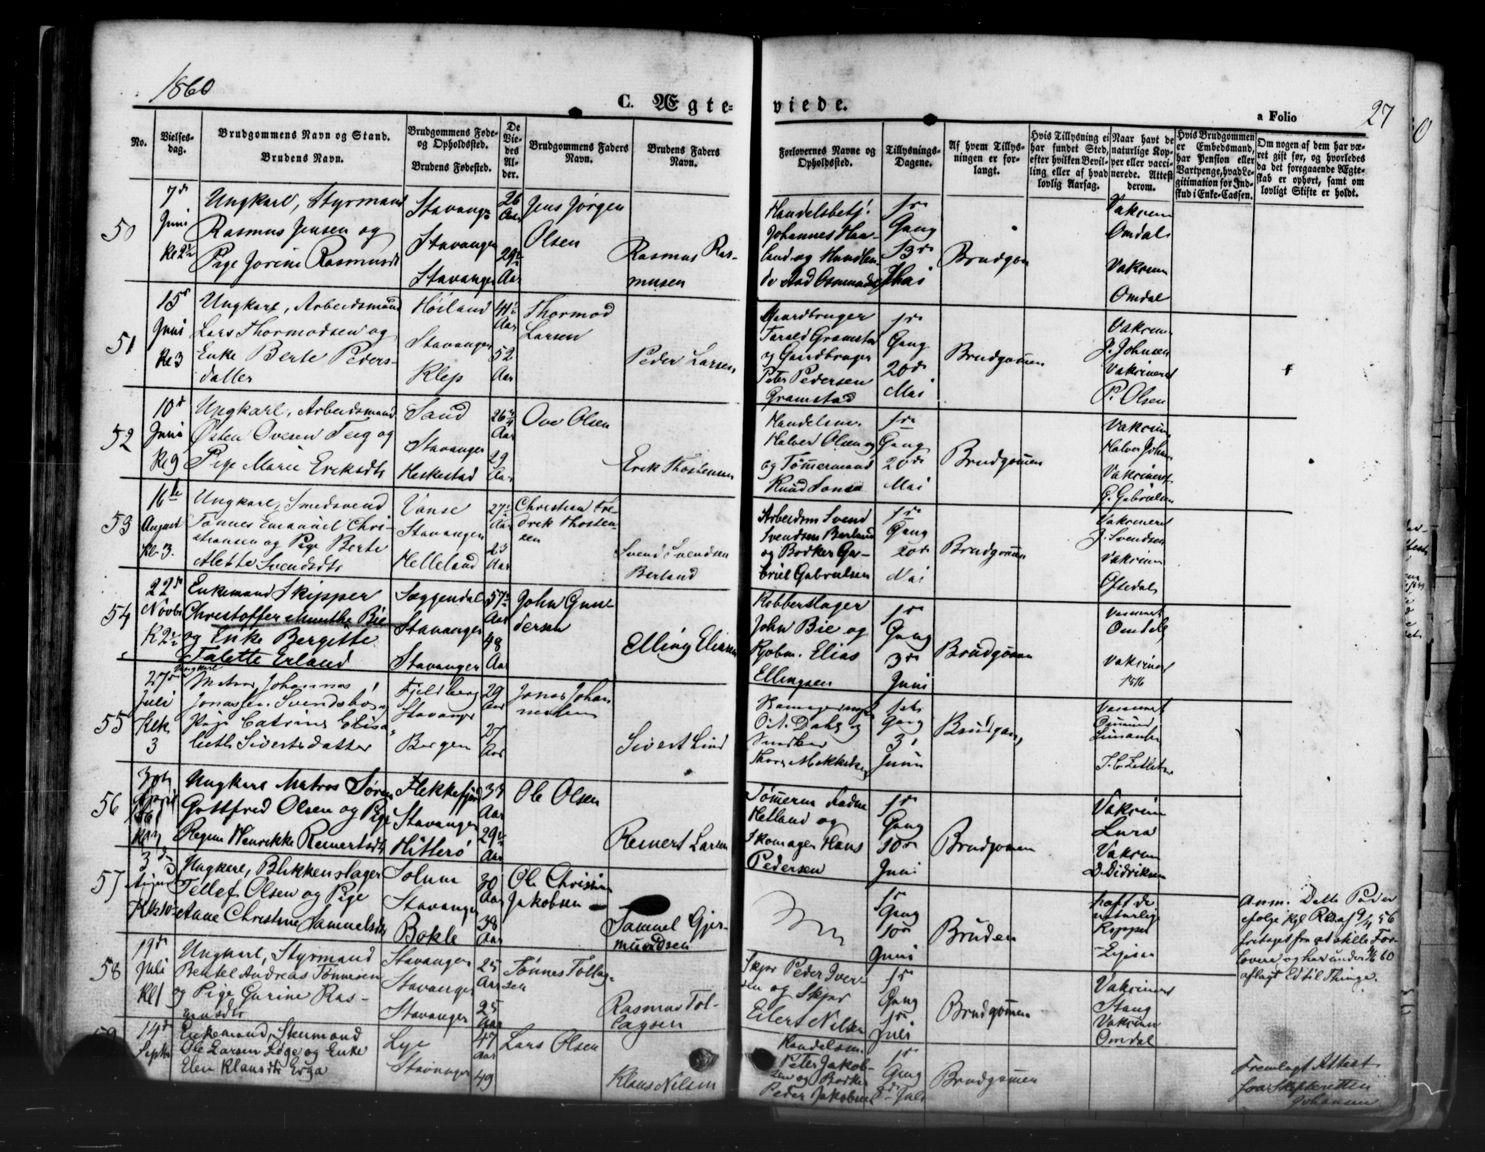 1860
C. Ægte-
viede.
a Folio 27
No.
Vielses-
dag.
Brudgommens Navn og Stand.
Brudens Navn.
Brudgommens Føde-
og Opholdssted.
Brudens Fødested.
De
Vie-
des
Al-
der.
Brudgommens Faders
Navn.
Brudens Faders
Navn.
Forlovernes Navne og
Opholdssted.
Tillysnings-
Dagene.
Af hvem Tillys-
ningen er for-
langt.
Hvis Tillysning ei
har fundet Sted,
efter hvilken Bevil-
ling eller af hvad
lovlig Aarsag.
Naar havt de
naturlige Kop-
per eller vacci-
nerede. Attest
derom.
Hvis Brudgommen
er Embedsmand,
har Pension eller
Vartpenge, hvad Le-
gitimation for Ind-
skud i Enke-Cassen.
Om nogen af dem har væ-
ret gift før, og hvorledes
da det foregaaende Ægte-
skab er ophørt, samt om
lovligt Skifte er holdt.
50
7de
Juni
Ungkarl, Styrmand
Rasmus Jensen og
Pige Jorine Rasmusdt
Stavanger
Stavanger
Stavanger
26
Aar
29½
Aar
Jens Jørgen
Olsen
Rasmus Ras-
musen
Handelsbetj.
Johannes Haa-
land og Handlen-
de Aad Osmundsen
1ste
Gang
13de
Mai
Brudgom
Vakcin
Omdal
Vakcin
Omdal
51
15de
Juni
Kl 3
Ungkarl, Arbeidsmand
Lars Thormodsen og
Enke Berte Peders-
datter
Høiland
Stavanger
Klep
41½
Aar
52
Aar
Thormod
Larsen
Peder Larsen
Gaardbruger
Tarald Gramstad
og Gaardbruger
Peter Pedersen
Gramstad
1ste
Gang
20de
Mai
Brudgommen
Vakcin
J. Johnsen
Vakcineret
P. Olsen
52
10de
Juni
Kl 9
Ungkarl, Arbeidsmand
Østen Ovesen Teig og
Pige Marie Eriksdtr
Sand
Stavanger
Heskestad
26¼
Aar
29
Aar
Ove Olsen
Erik Thostensen
Handelsm.
Halvor Olsen og
og Tømmermand
Knud
1ste
Gang
20de
Mai
Brudgommen
Vakcin
Halvor Johan
Vakcineret
G. Gabrielsen
53
16de
August
Kl. 3.
Ungkarl, Smedsvend
Tønnes Emanuel Chri-
stiansen og Pige Berte
Alette Svendsdtr
Vanse
Stavanger
Helleland
27½
Aar
23
Aar
Christian Fre-
drek Thosten-
sen
Svend Svendsen
Berland
Arbeidsm Svend
Svendsen Berland
og Bødker Ga-
briel Gabrielsen
1ste
Gang
20de
Mai
Brudgommen
Vakcineret
J. Svendsen
Vakcin
Oftedal
54
22de
Novbr
Enkemand Skipper
Christoffer Munthe Bie
og Enke Bergitte
Talette Erland
Soggendal
Stavanger
Stavanger
57½
Aar
48
Aar
John Gun-
dersen
Elling Eliasen
Kobberslager
John Bie og
Kjøbm. Elias
Ellingsen
1ste
Gang
3de
Juni
Brudgommen
Vaccineret
Omdal
Vakcineret
1816
55
27de
Juli
3
Ungkarl
Matros Johannes
Jonassen Svendsbøe
Pige Catrine Elisa-
beth Sivertsdatter
Fjeldberg
Stavanger
Bergen
29
Aar
27
Aar
Jonas Johan-
nesen
Sivert Lind
O. A. Dahl og
Snedker
Thore Mikkelsen
1ste
Gang
3de
Juni
Brudgom,
Vaccineret
56
30te
Ungkarl Matros Søren
Gottfred Olsen og Pige
Regine Henrikke Reinertsdtr
Flekkefjord
Stavanger
Hitterø
37
Aar
29½
Aar
Ole Olsen
Reinert Larsen
Tømmerm
Hetland og
Skomager Hans
Pedersen
1ste
Gang
10de
Juni
Brudgommen
Vakcin
Lura
Vakcin
D. Didriksen
57
3de
August
Ungkarl, Blikkenslager
Tellef Olsen og Pige
Anne Christine Samuelsdtr
Solum
Stavanger
Bokle
30
Aar
38
Aar
Ole Christian
Jakobsen
Samuel Gjer-
mundsen
1ste
Gang
10de
Juni
Bruden
haft de
naturlige
Kopper
Anm. Dette Par er
ifølge Kgl Res af 9/4 56
fritaget for at stille For-
lovere, og har under 60
aflagt Ed til Thinge.
58
19de
Juli
Kl 1
Ungkarl, Styrmand
Bertel Andreas Tønnesen
og Pige Gurine Ras-
musdtr
Stavanger
Stavanger
Stavanger
25
Aar
25
Aar
Tønnes Tollag-
sen
Rasmus Tol-
lagsen
Skpr Peder Iver-
sen og Skpr
Eilert Nilsen
1ste
Gang
1ste
Juli
Brudgommen
Vakcineret
Stang
Vakcin
Omdal
59
14de
Septbr
Enkemand, Steenmand
Ole Larsen Lyge og Enke
Elen Klausdtr Erga
Lye
Stavanger
47
Aar
49
Lars Olsen
Klaus Nilsen
Handelsm.
Peter Jakob-
sen og Bødker
Peder Jakobsen
1ste
Gang
8de Juli
Brudgommen
Fremlagt Attest
fra Skifteretten
Johansen